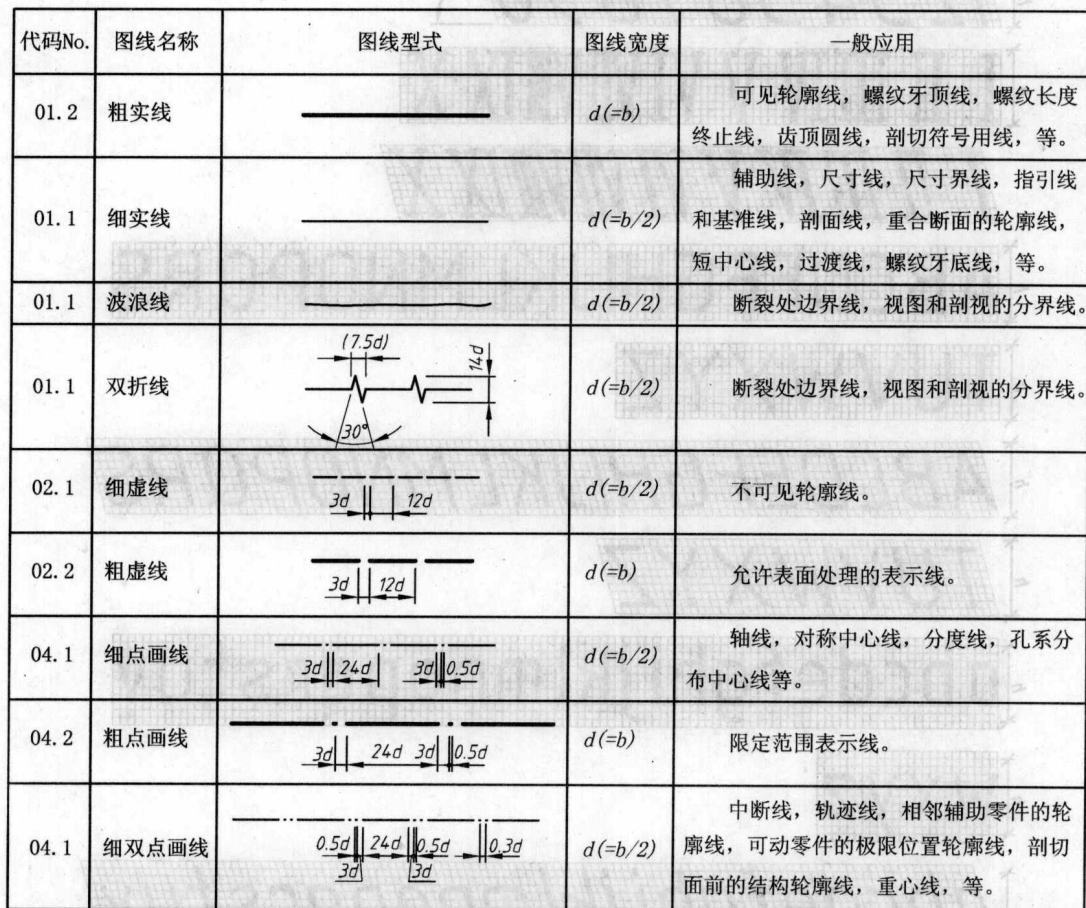 代码No. 图线名称 图线型式 图线宽度 一般应用
01.2 粗实线 d(=b) 可见轮廓线，螺纹牙顶线，螺纹长度
终止线，齿顶圆线，剖切符号用线，等。
01.1 细实线 d(=b/2) 辅助线，尺寸线，尺寸界线，指引线
和基准线，剖面线，重合断面的轮廓线，
短中心线，过渡线，螺纹牙底线，等。
01.1 波浪线 d(=b/2) 断裂处边界线，视图和剖视的分界线。
01.1 双折线 (7.5d) 14d 30° d(=b/2) 断裂处边界线，视图和剖视的分界线。
02.1 细虚线 3d 12d d(=b/2) 不可见轮廓线。
02.2 粗虚线 3d 12d d(=b) 允许表面处理的表示线。
04.1 细点画线 3d 24d 3d 0.5d d(=b/2) 轴线，对称中心线，分度线，孔系分
布中心线等。
04.2 粗点画线 3d 24d 3d 0.5d d(=b) 限定范围表示线。
04.1 细双点画线 0.5d 24d 0.5d 0.3d d(=b/2) 中断线，轨迹线，相邻辅助零件的轮
3d 3d 廓线，可动零件的极限位置轮廓线，剖切
面前的结构轮廓线，重心线，等。